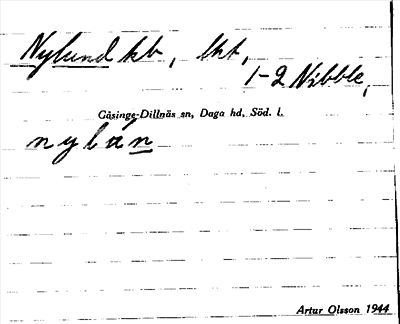 Nylund kb, lht,
1-2 Nibble,
Gåsinge-Dillnäs sn, Daga hd, Söd. l.
nylán
Artur Olsson 1944